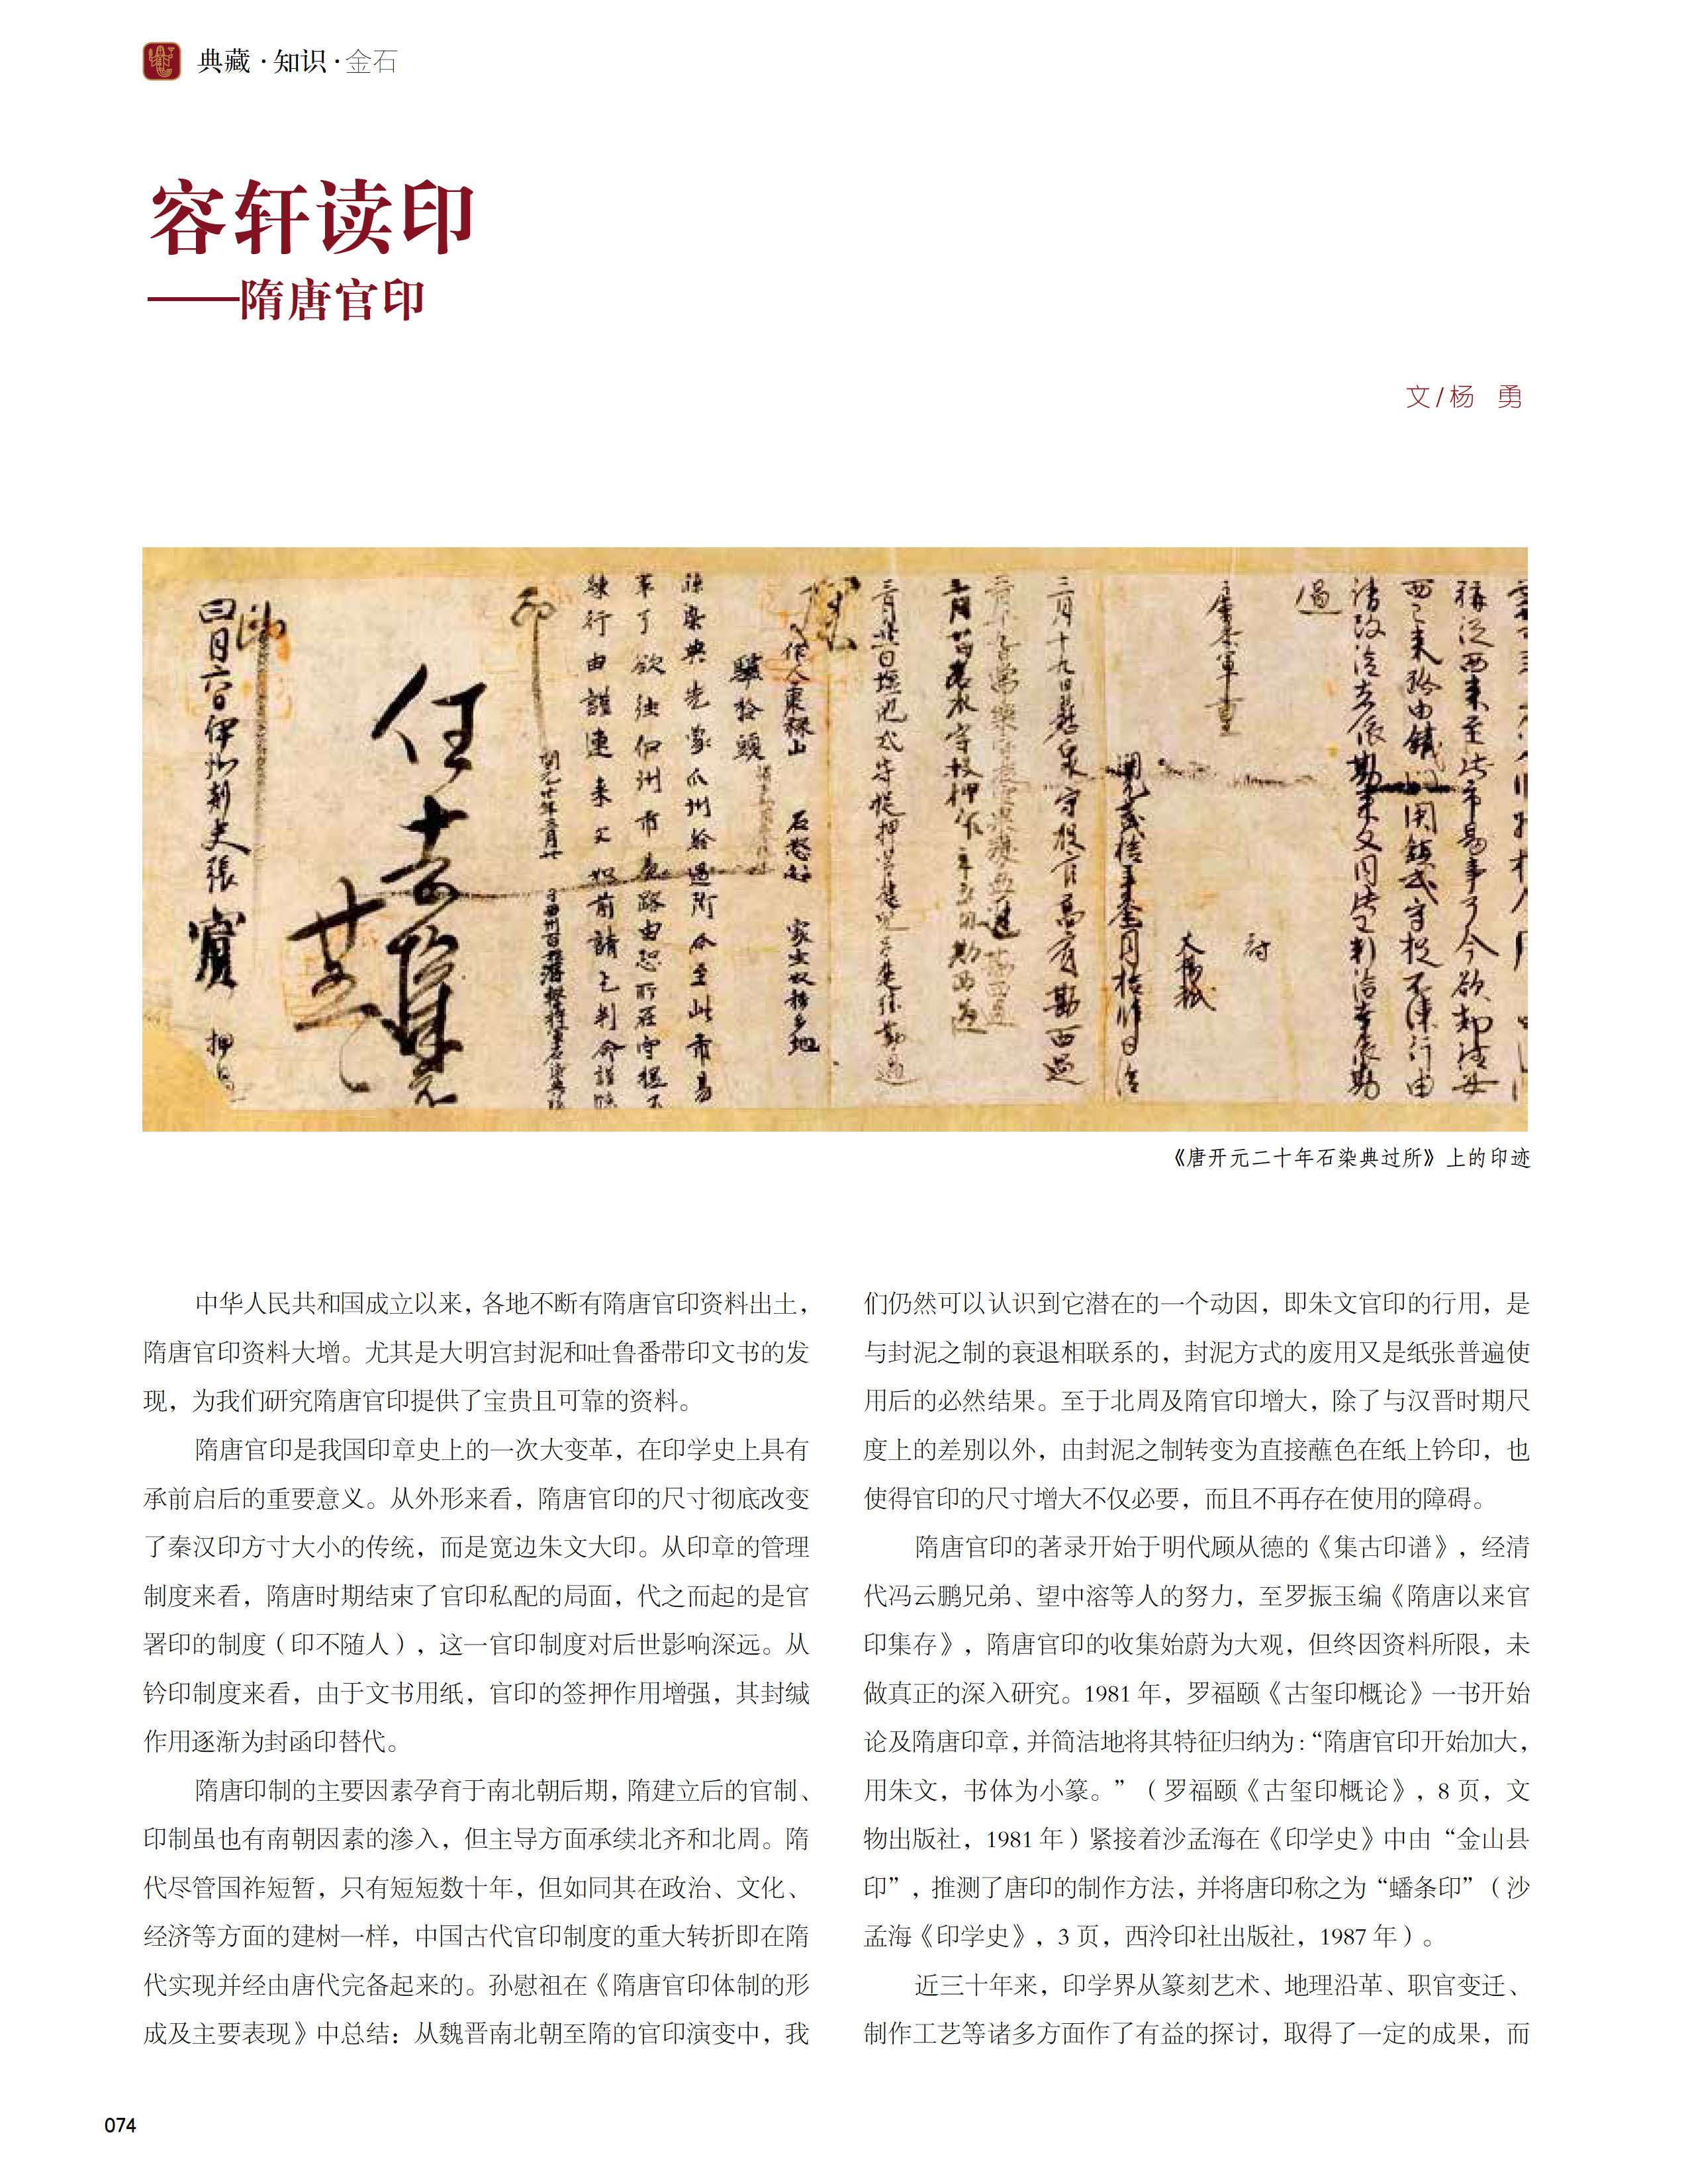 典藏·知识·金石
容轩读印
——隋唐官印
文/杨 勇
四月六日伊州刺史張賓 押過
印
任去
琭行由謹連来文如前請乞判命謹牒
市易路由恐所在守捉不
染典先蒙瓜州給過所今至此市易
驢拾頭
作人康祿山 石怒忿 家生奴移多地
三月十九日懸泉守捉官高賓勘西過
戶曹參軍亶
尉
開元貳拾年叁月拾肆日
過
《唐开元二十年石染典过所》上的印迹
中华人民共和国成立以来，各地不断有隋唐官印资料出土，
隋唐官印资料大增。尤其是大明宫封泥和吐鲁番带印文书的发
现，为我们研究隋唐官印提供了宝贵且可靠的资料。
隋唐官印是我国印章史上的一次大变革，在印学史上具有
承前启后的重要意义。从外形来看，隋唐官印的尺寸彻底改变
了秦汉印方寸大小的传统，而是宽边朱文大印。从印章的管理
制度来看，隋唐时期结束了官印私配的局面，代之而起的是官
署印的制度（印不随人），这一官印制度对后世影响深远。从
钤印制度来看，由于文书用纸，官印的签押作用增强，其封缄
作用逐渐为封函印替代。
隋唐印制的主要因素孕育于南北朝后期，隋建立后的官制、
印制虽也有南朝因素的渗入，但主导方面承续北齐和北周。隋
代尽管国祚短暂，只有短短数十年，但如同其在政治、文化、
经济等方面的建树一样，中国古代官印制度的重大转折即在隋
代实现并经由唐代完备起来的。孙慰祖在《隋唐官印体制的形
成及主要表现》中总结：从魏晋南北朝至隋的官印演变中，我
们仍然可以认识到它潜在的一个动因，即朱文官印的行用，是
与封泥之制的衰退相联系的，封泥方式的废用又是纸张普遍使
用后的必然结果。至于北周及隋官印增大，除了与汉晋时期尺
度上的差别以外，由封泥之制转变为直接蘸色在纸上钤印，也
使得官印的尺寸增大不仅必要，而且不再存在使用的障碍。
隋唐官印的著录开始于明代顾从德的《集古印谱》，经清
代冯云鹏兄弟、望中溶等人的努力，至罗振玉编《隋唐以来官
印集存》，隋唐官印的收集始蔚为大观，但终因资料所限，未
做真正的深入研究。1981 年，罗福颐《古玺印概论》一书开始
论及隋唐印章，并简洁地将其特征归纳为：“隋唐官印开始加大，
用朱文，书体为小篆。”（罗福颐《古玺印概论》，8 页，文
物出版社，1981 年）紧接着沙孟海在《印学史》中由“金山县
印”，推测了唐印的制作方法，并将唐印称之为“蟠条印”（沙
孟海《印学史》，3 页，西泠印社出版社，1987 年）。
近三十年来，印学界从篆刻艺术、地理沿革、职官变迁、
制作工艺等诸多方面作了有益的探讨，取得了一定的成果，而
074